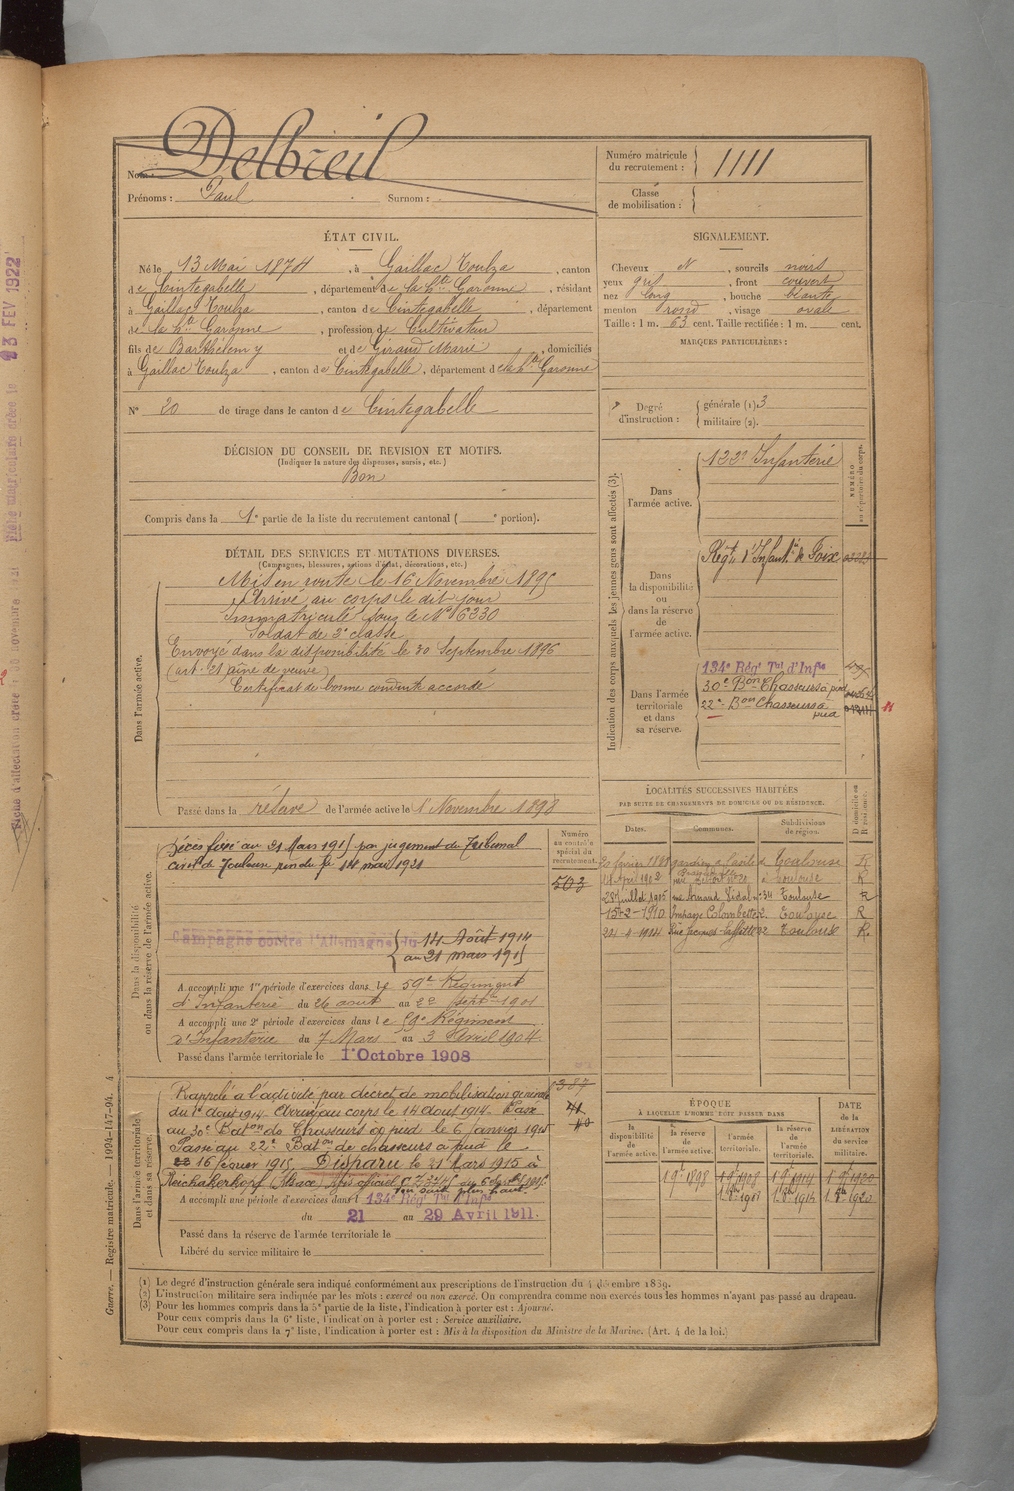 Nom: Delbreil
Prénoms : Paul Surnom :
Numéro matricule du recrutement : 1111
Classe de mobilisation :
ÉTAT CIVIL.
Né le 13 Mai 1874, à Gaillac Toulza, canton
de Cintegabelle, département de la Hte Garonne, résidant
à Gaillac Toulza, canton de Cintegabelle, département
de la Hte Garonne, profession de Cultivateur
fils de Barthélemy et de Giraud Marie, domiciliés
à Gaillac Toulza, canton de Cintegabelle, département de la Hte Garonne
N° 20 de tirage dans le canton de Cintegabelle
SIGNALEMENT.
Cheveux N, sourcils noirs
yeux gris, front couvert
nez long, bouche béante
menton rond, visage ovale
Taille : 1 m. 63 cent. Taille rectifiée : 1 m. cent.
MARQUES PARTICULIÈRES :
Degré d'instruction : générale (1) 3
militaire (2).
DÉCISION DU CONSEIL DE REVISION ET MOTIFS.
(Indiquer la nature des dispenses, sursis, etc.)
Bon
Compris dans la 1e partie de la liste du recrutement cantonal ( e portion).
DÉTAIL DES SERVICES ET MUTATIONS DIVERSES.
(Campagnes, blessures, actions d'éclat, décorations, etc.)
Dans l'armée active.
Mis en route le 16 Novembre 1895
Arrivé au corps le dit jour
Immatriculé sous le N° 6230
Soldat de 2e classe
Envoyé dans la disponibilité le 30 Septembre 1896
(art. 21 aîné de veuve)
Certificat de bonne conduite accordé
Passé dans la réserve de l'armée active le 1 Novembre 1898
Indication des corps auxquels les jeunes gens sont affectés (3).
NUMÉRO au répertoire du corps.
Dans l'armée active.
122e Infanterie
Dans la disponibilité ou dans la réserve de l'armée active.
Régt d'Infantie de Foix
Dans l'armée territoriale et dans sa réserve.
134e Rég Tal d'Infie
30e Bon Chasseurs à pied
22e Bon Chasseurs à pied
LOCALITÉS SUCCESSIVES HABITÉES
PAR SUITE DE CHANGEMENTS DE DOMICILE OU DE RÉSIDENCE.
Dates. Communes. Subdivisions de région. D domicile ou R résidence.
Toulouse R
Toulouse R
28 juillet 1905 rue Arnaud Vidal n° 34 Toulouse R
15-2-1910 Impasse Colombette 2. Toulouse R
Toulouse R.
Dans la disponibilité ou dans la réserve de l'armée active.
Numéro au contrôle spécial du recrutement.
503
Décès fixé au 21 Mars 1915 par jugement du Tribunal
civil de Toulouse rendu le 14 mai 1921
Campagne contre l'Allemagne du 14 Août 1914
au 21 mars 1915
A accompli une 1re période d'exercices dans le 59e Régiment
d'Infanterie du 26 août au 22 septbre 1901
A accompli une 2e période d'exercices dans le 59e Régiment
d'Infanterie du 7 Mars au 3 Avril 1904.
Passé dans l'armée territoriale le 1e Octobre 1908
Dans l'armée territoriale et dans sa réserve.
387
Rappelé à l'activité par décret de mobilisation générale
du 1er août 1914. Arrivé au corps le 14 août 1914. Passé
au 30e Baton de Chasseurs à pied le 6 janvier 1915
Passé au 22e Baton de chasseurs à pied le
16 février 1915. Disparu le 21 Mars 1915 à
Reichakerkopf (Alsace)
A accompli une période d'exercices dans l 134e Rég Tal d'Infie
du 21 au 29 Avril 1911.
Passé dans la réserve de l'armée territoriale le
Libéré du service militaire le
ÉPOQUE
À LAQUELLE L'HOMME DOIT PASSER DANS
la disponibilité de l'armée active. la réserve de l'armée active. l'armée territoriale. la réserve de l'armée territoriale.
DATE de la LIBÉRATION du service militaire.
(1) Le degré d'instruction générale sera indiqué conformément aux prescriptions de l'instruction du 4 décembre 1889.
(2) L'instruction militaire sera indiquée par les mots : exercé ou non exercé. On comprendra comme non exercés tous les hommes n'ayant pas passé au drapeau.
(3) Pour les hommes compris dans la 5e partie de la liste, l'indication à porter est : Ajourné.
Pour ceux compris dans la 6e liste, l'indication à porter est : Service auxiliaire.
Pour ceux compris dans la 7e liste, l'indication à porter est : Mis à la disposition du Ministre de la Marine. (Art. 4 de la loi.)
Guerre. — Registre matricule. — 1994-147-94. 4
23 FEV 1922